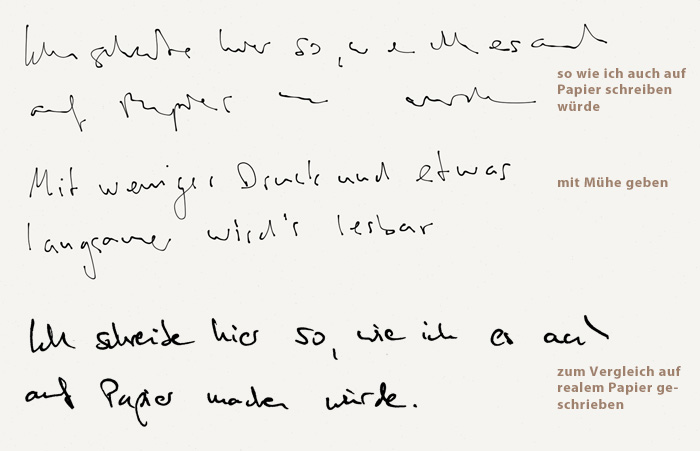 Ich schreibe hier so, wie ich es auch
auf Papier machen würde
so wie ich auch auf
Papier schreiben
würde
Mit weniger Druck und etwas
langsamer wird's lesbar
mit Mühe geben
Ich schreibe hier so, wie ich es auch
auf Papier machen würde.
zum Vergleich auf
realem Papier ge-
schrieben